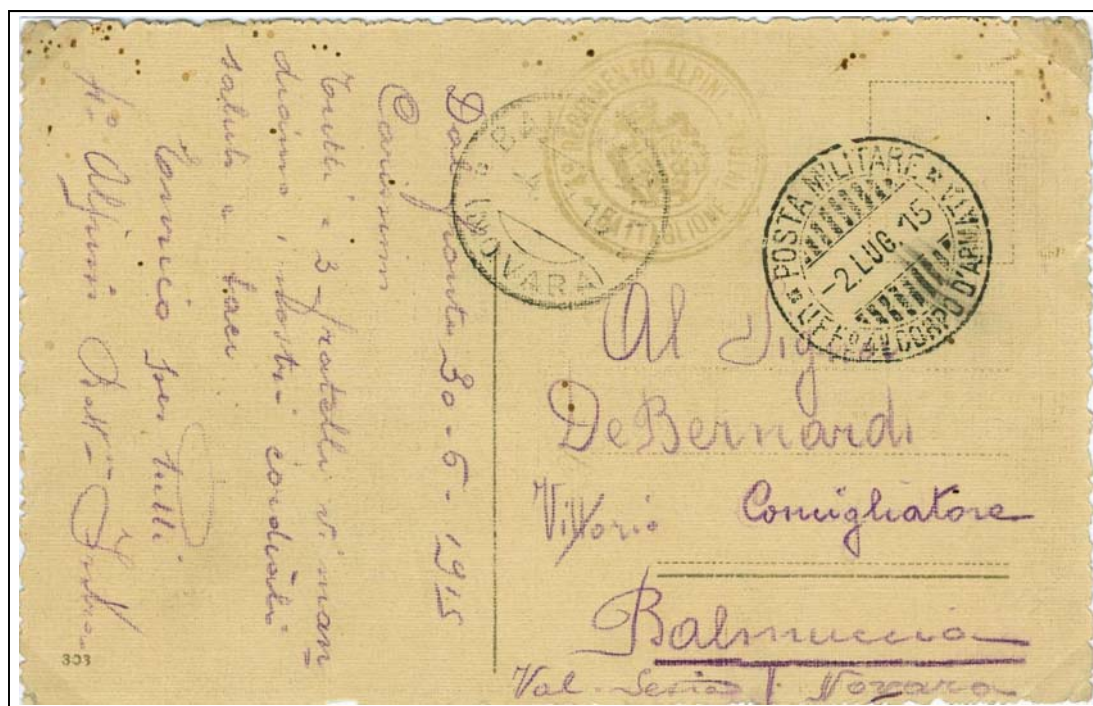 Dal fronte 30-6-1915
Carissimi
Tutti e 3 fratelli vi man
diamo i nostri cordiali
saluti e baci
Enrico per tutti
4º Alpini Batt. Intra
4º REGGIMENTO ALPINI
BATTAGLIONE
4
15
(NOVARA)
POSTA MILITARE
-2.LUG.15
CORPO D'ARMATA
Al Signor
DeBernardi
Vittorio Consigliatore
Balmuccia
Val-Sesia Novara
303